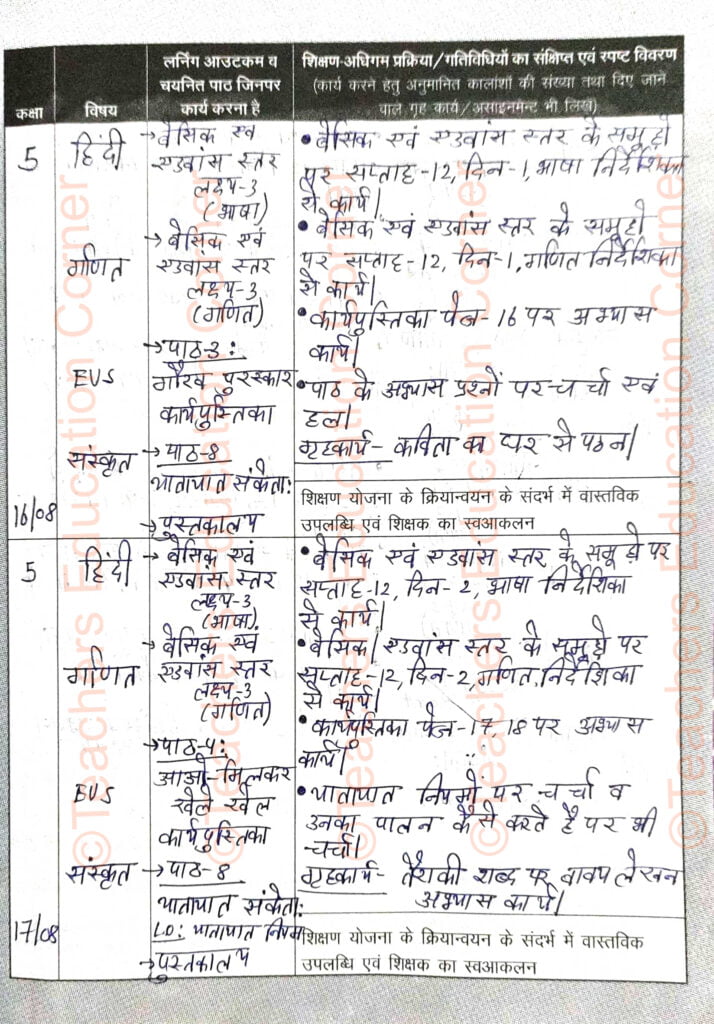 कक्षा
विषय
लर्निंग आउटकम व
चयनित पाठ जिनपर
कार्य करना है
शिक्षण-अधिगम प्रक्रिया/गतिविधियों का संक्षिप्त एवं स्पष्ट विवरण
(कार्य करने हेतु अनुमानित कालांशों की संख्या तथा दिए जाने
वाले गृह कार्य/असाइनमेन्ट भी लिखें)
5
हिंदी
→ बेसिक एवं
एडवांस स्तर
लक्ष्य-3
(भाषा)
• बेसिक एवं एडवांस स्तर के समूहो
पर सप्ताह-12, दिन-1, भाषा निर्देशिका
से कार्य।
गणित
→ बेसिक एवं
एडवांस स्तर
लक्ष्य-3
(गणित)
• बेसिक एवं एडवांस स्तर के समूहो
पर सप्ताह-12, दिन-1, गणित निर्देशिका
से कार्य।
EVS
→ पाठ-3:
गौरव पुरस्कार
कार्यपुस्तिका
• कार्यपुस्तिका पेज-16 पर अभ्यास
कार्य।
संस्कृत
→ पाठ-8
यातायात संकेता:
→ पुस्तकालय
• पाठ के अभ्यास प्रश्नों पर चर्चा एवं
हल।
गृहकार्य- कविता का घर से पठन।
16/08
शिक्षण योजना के क्रियान्वयन के संदर्भ में वास्तविक
उपलब्धि एवं शिक्षक का स्वआकलन
5
हिंदी
→ बेसिक एवं
एडवांस स्तर
लक्ष्य-3
(भाषा)
• बेसिक एवं एडवांस स्तर के समूहो पर
सप्ताह-12, दिन-2, भाषा निर्देशिका
से कार्य।
गणित
→ बेसिक एवं
एडवांस स्तर
लक्ष्य-3
(गणित)
• बेसिक/एडवांस स्तर के समूहो पर
सप्ताह-12, दिन-2, गणित निर्देशिका
से कार्य।
EVS
→ पाठ-4:
आओ मिलकर
खेले खेल
कार्यपुस्तिका
• कार्यपुस्तिका पेज-17,18 पर अभ्यास
कार्य।
संस्कृत
→ पाठ-8
यातायात संकेता:
LO: यातायात नियम
→ पुस्तकालय
• यातायात नियमों पर चर्चा व
उनका पालन कैसे करते है पर भी
चर्चा।
गृहकार्य- तैराकी शब्द पर वाक्य लेखन
अभ्यास कार्य।
17/08
शिक्षण योजना के क्रियान्वयन के संदर्भ में वास्तविक
उपलब्धि एवं शिक्षक का स्वआकलन
©Teachers Education Corner
©Teachers Education Corner
©Teachers Education Corner
©Teachers Education Corner